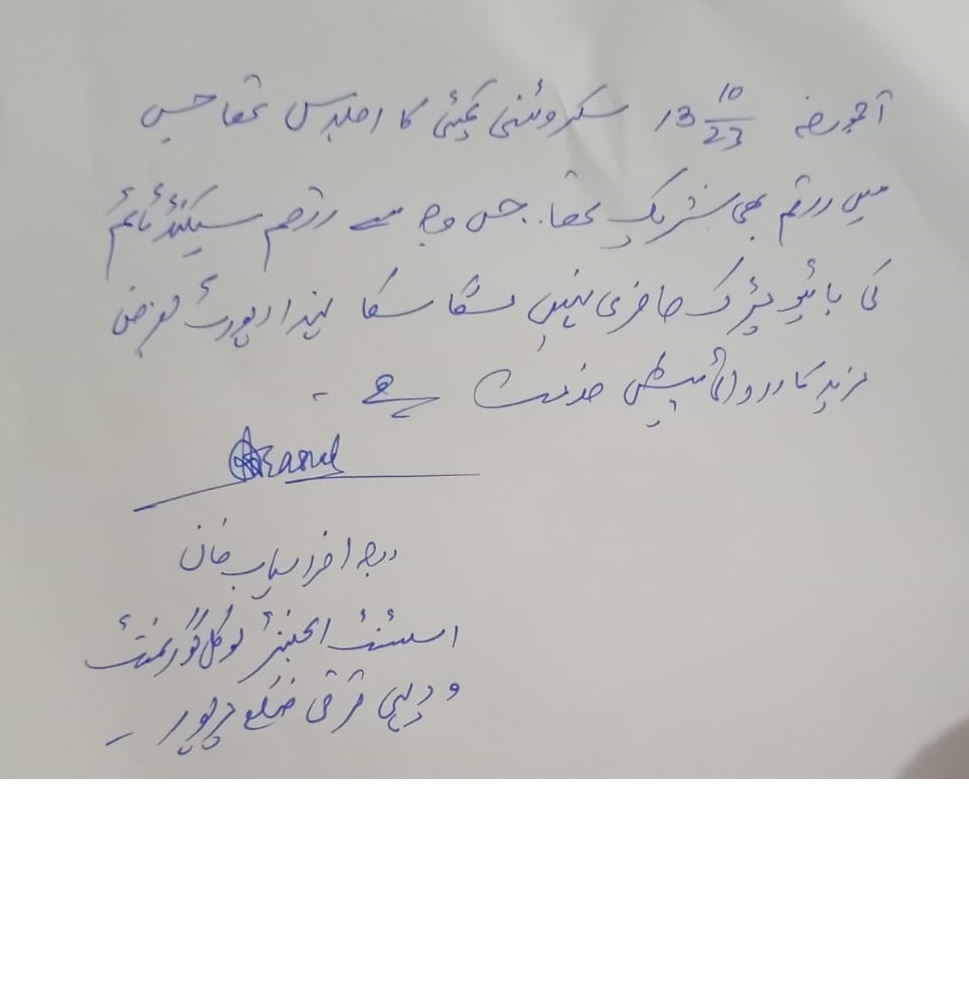 آجمورخہ 13 10/23 سکروٹنی کمیٹی کا اجلاس تھا جس
میں راقم بھی شریک تھا۔ جس وجہ سے راقم سیکنڈ ٹائم
کی بائیو میٹرک حاضری نہیں لگا سکا لہذا رپورٹ بغرض
مزید کارروائی پیش خدمت ہے ۔
راجہ افراسیاب خان
اسسٹنٹ انجینئر لوکل گورنمنٹ
و دیہی ترقی ضلع میرپور ۔